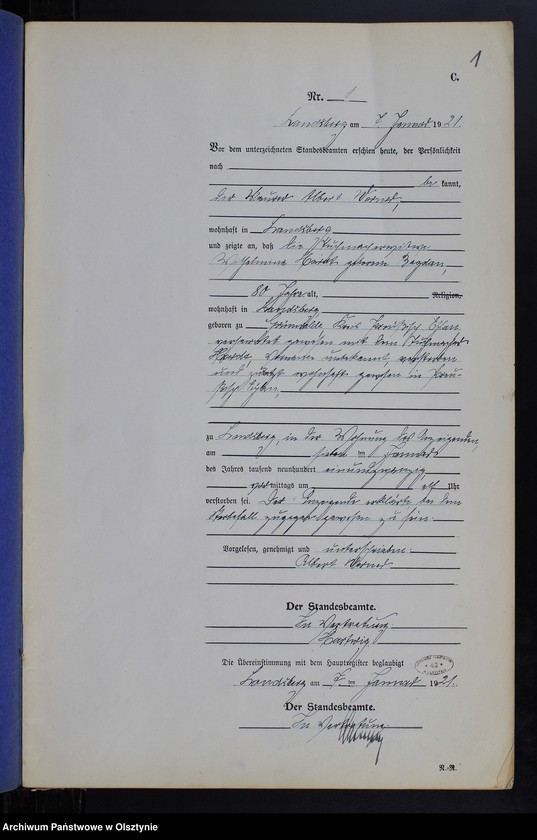 1
C.
Nr. 1
Landsberg am 7. Januar 1921.
Vor dem unterzeichneten Standesbeamten erschien heute, der Persönlichkeit
nach
be kannt,
der Maurer Albert Werner,
wohnhaft in Landsberg
und zeigte an, daß die
Wilhelmine geborene Bogdan,
80 Jahre alt, Religion,
wohnhaft in Landsberg
geboren zu Kreis Preußisch Eylau
verheiratet gewesen mit dem
Vorname unbekannt, verstorben
und zuletzt wohnhaft gewesen in Preu-
ßisch Eylau,
zu Landsberg, in der Wohnung des Anzeigenden,
am Januar
des Jahres tausend neunhundert einundzwanzig
vor mittags um elf Uhr
verstorben sei. Der Anzeigende erklärte bei dem
Sterbefall zugegen gewesen zu sein.
Vorgelesen, genehmigt und unterschrieben.
Albert Werner
Der Standesbeamte.
In Vertretung.
Hartwig
Die Übereinstimmung mit dem Hauptregister beglaubigt
Landsberg am 7. Januar 1921.
Der Standesbeamte.
In Vertretung.
N.-R.
Archiwum Państwowe w Olsztynie